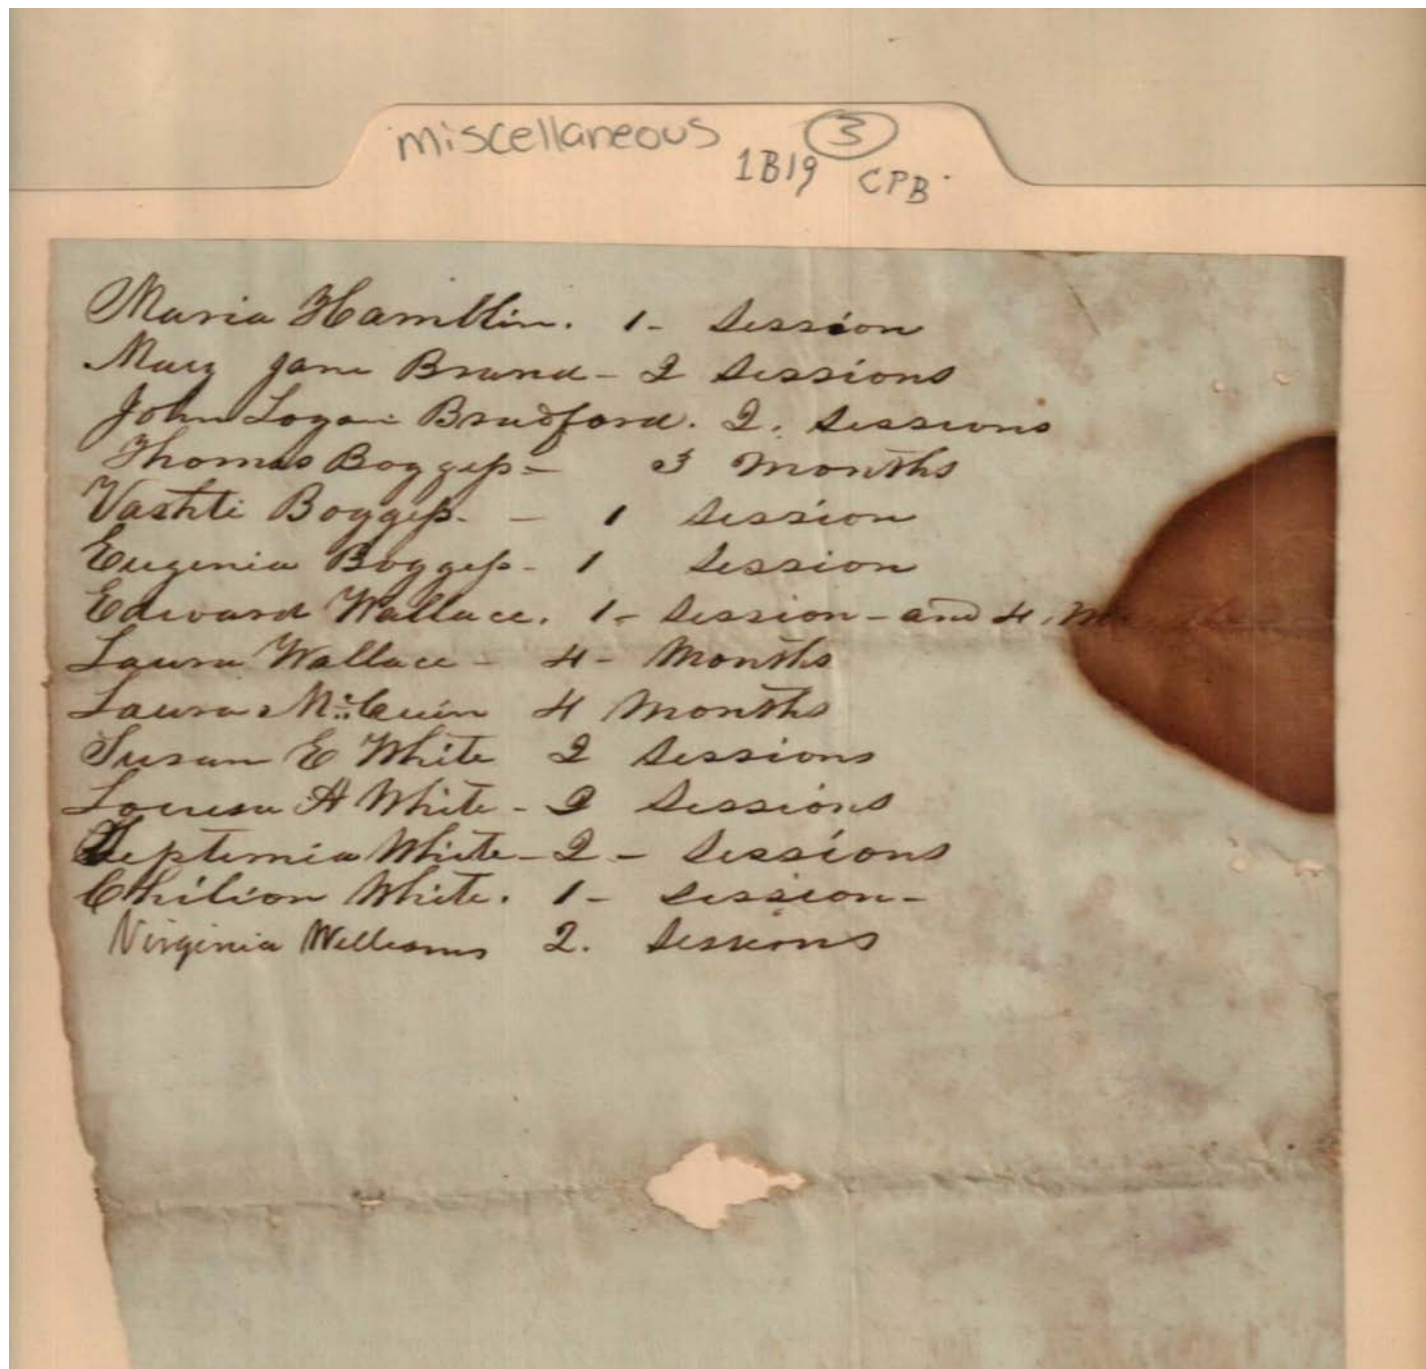 miscellaneous 3
1B19 CPB
Maria Hamblin. 1- Session
Mary Jane Brand - 2 Sessions
John Logan Bradford. 2. Sessions
Thomas Boggess - 3 Months
Vashti Boggess. - 1 Session
Eugenia Boggess - 1 Session
Edward Wallace. 1- Session - and 4 Months
Laura Wallace - 4 - Months
Laura McCuin 4 Months
Susan E White 2 Sessions
Louesa A White - 2 Sessions
Septemia White - 2 - Sessions
Chilion White. 1 - Session -
Virginia Williams 2. Sessions